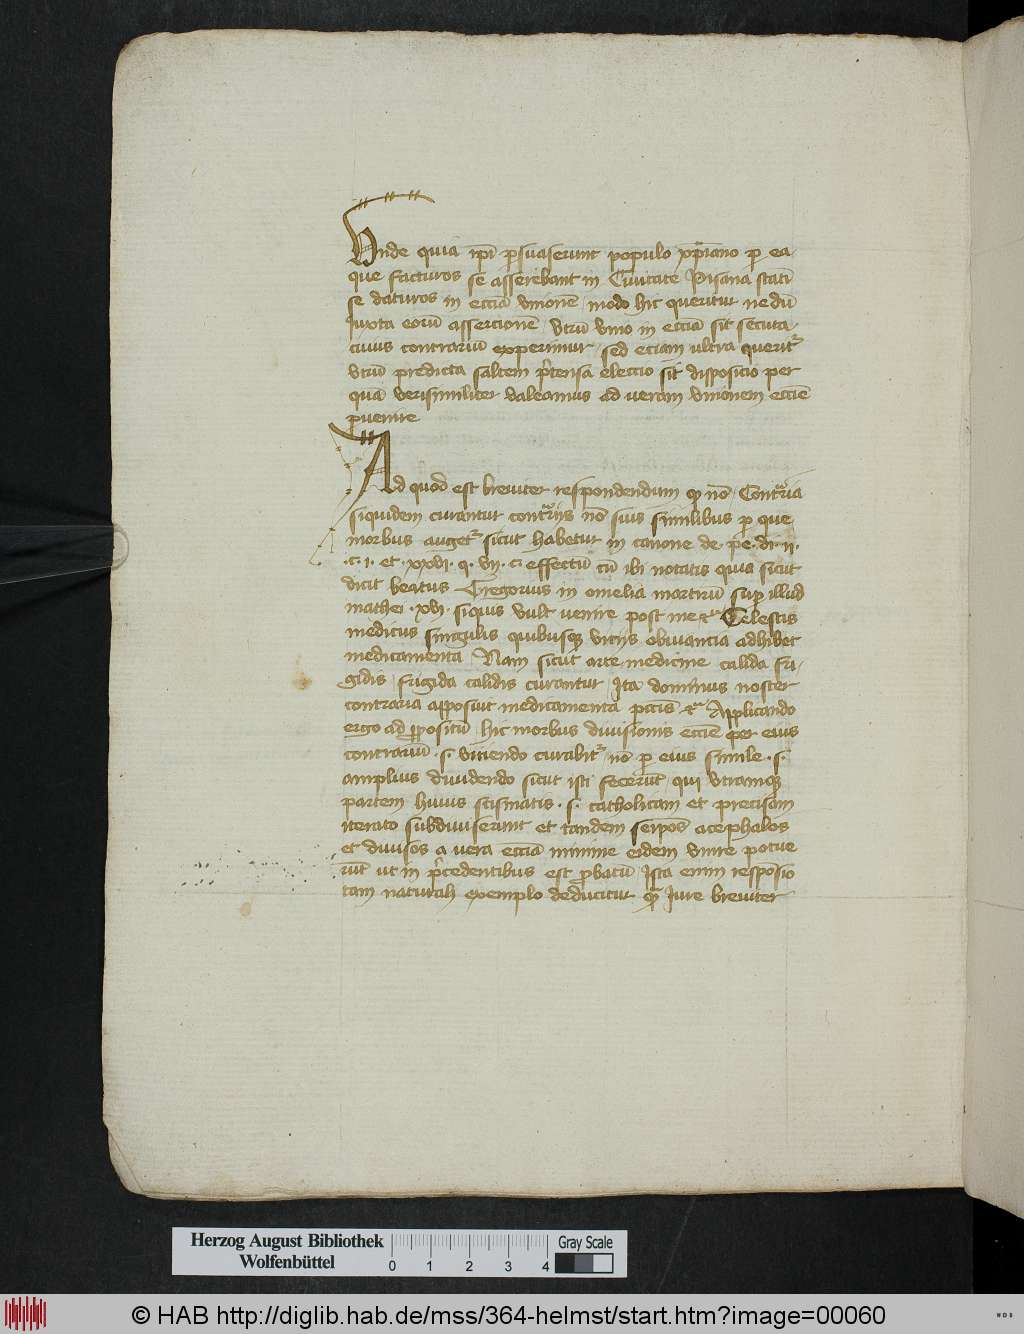 Unde quia ip̄i ꝑsuaserunt populo xp̄iano ꝑ ea
que facturos se asserebant in Civitate Pisana stati
se daturos in eccīa unionē modo hic queritur nedū
Iuxta eorū assercionē utrū unio in eccīa sit secuta
cuius contrariū experimur sed eciam ultra querit᷑
utrū predicta saltem p̄tensa eleccio sit disposicio per
quā verisimiliter valeamus ad veram unionem eccīe
ꝑvenire
Ad quod est breviter respondendum ꝙ nō Contraria
siquidem curantur contrariis nō suis similibus ꝑ que
morbus auget᷑ sicut habetur in canone de pe. di. ii.
.c. i. et xxvi. q. vii. c. effectū cū ibi notatis quia sicut
dicit beatus Gregorius in omelia martirū sup illud
mathei .xvi. siquis vult venire post me etc Celestis
medicus singulis quibusqꝫ viciis obviancia adhibet
medicamenta Nam sicut arte medicine calida fri
gidis frigida calidis curantur Ita dominus noster
contraria apposuit medicamenta pccīs etc Applicando
ergo ad ꝓpositū hic morbus divisionis eccīe per eius
contrariū .s. uniendo curabit᷑ nō ꝑ eius simile .s.
amplius dividendo sicut isti fecerūt qui utramqꝫ
partem huius scismatis .s. catholicam et precisam
iterato subdiviserunt et tandem seip̄os acephalos
et divisos a vera eccīa minime eidem unire potue
rūt ut in p̄cedentibus est ꝓbatū Ista enim respōsio
tam naturali exemplo deducitur qᷓ Iure breviter
Herzog August Bibliothek
Wolfenbüttel
0 1 2 3 4
Gray Scale
© HAB http://diglib.hab.de/mss/364-helmst/start.htm?image=00060